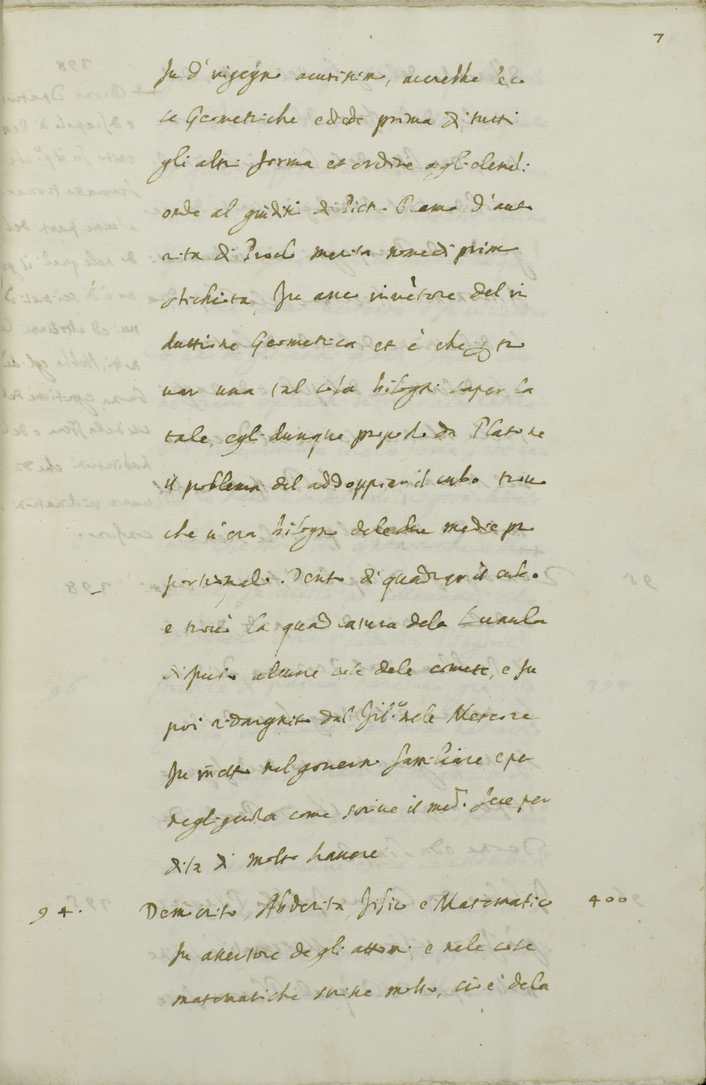 7
fu d'ingegno acutissimo, accrebbe le co
se Geometriche e diede prima di tutti
gli altri forma et ordine agli elem.ti
onde al giuditio di Pietro Ramo d'auto
rità di Proclo merita nome di primo
stichiota, fu anco inventore del in
duttione Geometrica et è che tro
var una tal cosa bisogni saper la
tale, egli dunque proposto da Platone
il problema del addoppiar il cubo trovò
che v'era bisogno dele due medie pro
portionali. Tentò di quadrar il
e trovò la quadratura dela Lunula
disputò alcune cose dele comete, e fu
poi redarguito dal Fil.º nele Meteore
fu inetto nel governo familiare e per
negligenza come scrive il med.º fece per
dita di molto havere
94. Democrito Abderita fisico e Matematico 400
fu assertore degli attomi e nele cose
matematiche scrisse molto, cioè dela